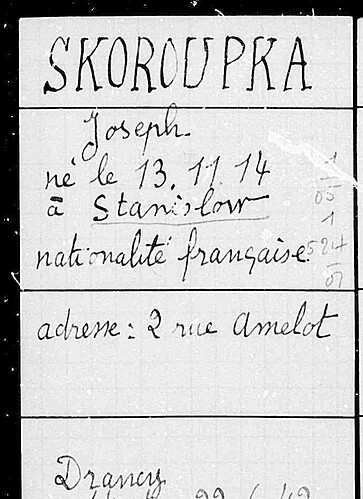 SKOROUPKA
Joseph
né le 13.11.14
à Stanislow
nationalité française
adresse: 2 rue Amelot
Drancy